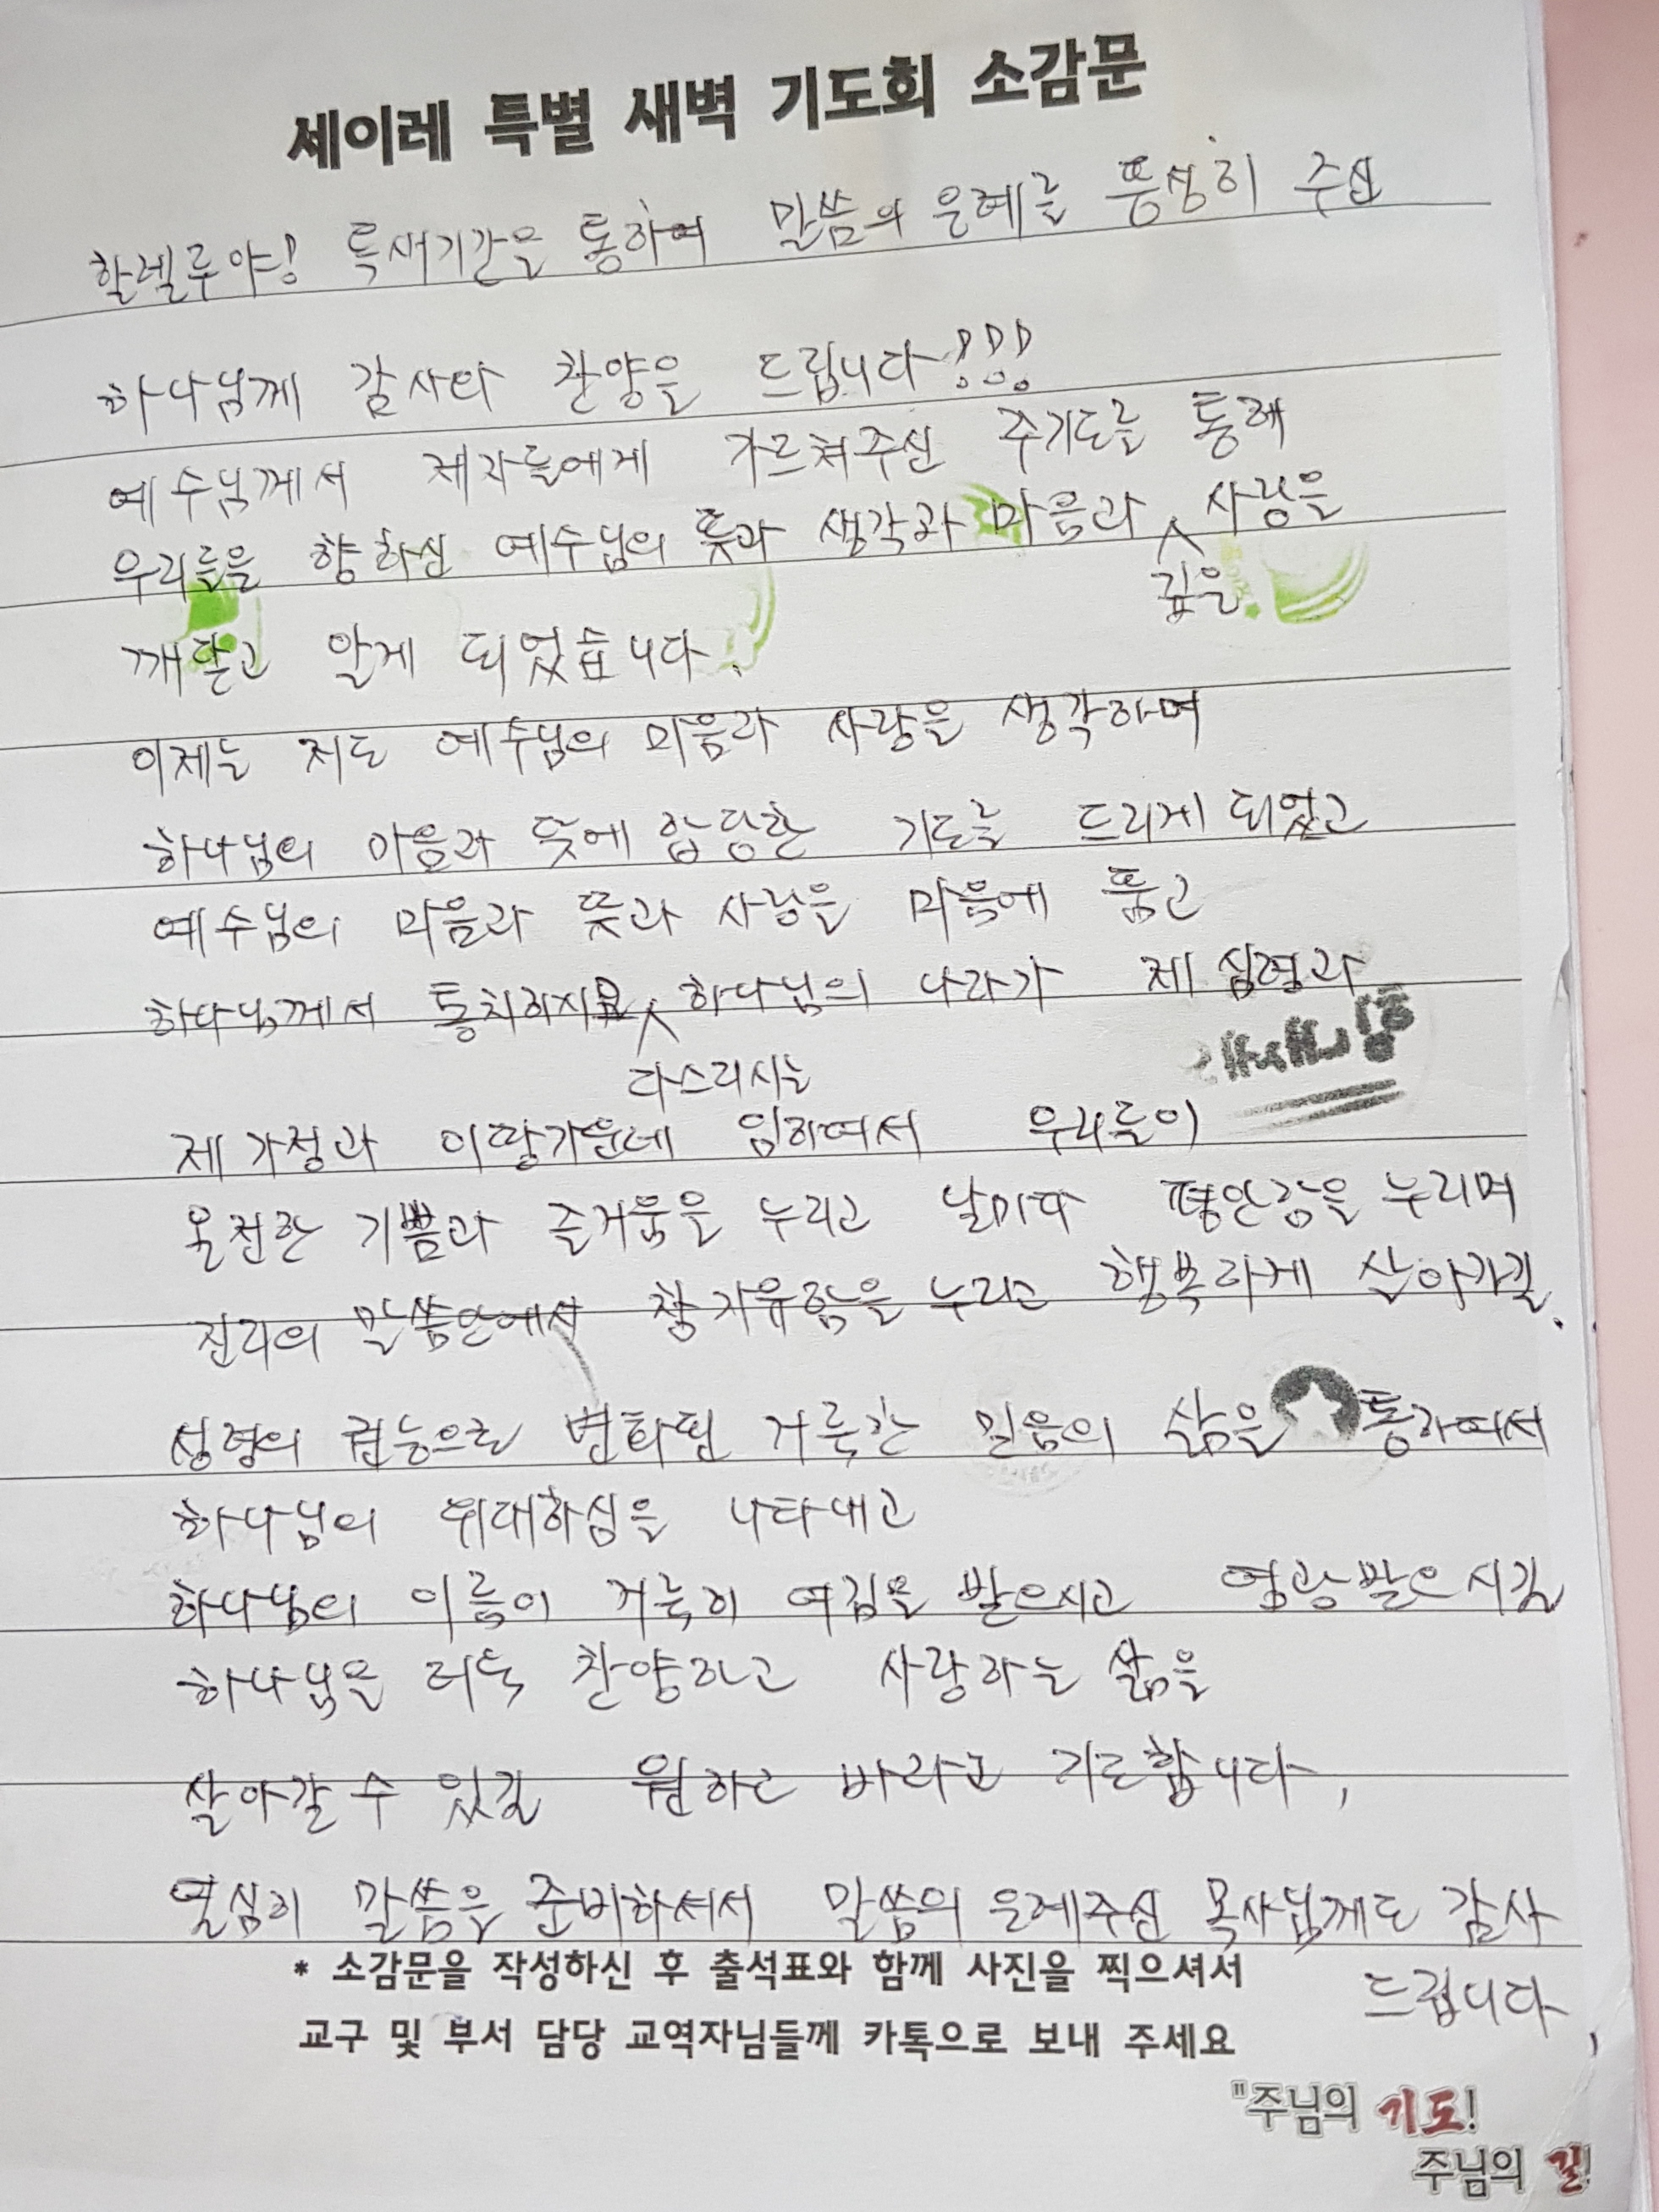 세이레 특별 새벽 기도회 소감문
할렐루야! 특새기간을 통하여 말씀의 은혜를 풍성히 주신
하나님께 감사와 찬양을 드립니다!!!
예수님께서 제자들에게 가르쳐주신 주기도를 통해
우리들을 향하신 예수님의 뜻과 생각과 마음과 깊은 사랑을
깨닫고 알게 되었습니다.
이제는 저도 예수님의 마음과 사랑을 생각하며
하나님의 마음과 뜻에 합당한 기도를 드리게 되었고
예수님의 마음과 뜻과 사랑을 마음에 품고
하나님께서 통치하시며 다스리시는 하나님의 나라가 제 심령과
제 가정과 이땅가운데 임하여서 우리들이
온전한 기쁨과 즐거움을 누리고 날마다 평안함을 누리며
진리의 말씀안에서 참자유함을 누리고 행복하게 살아가길.
성령의 권능으로 변화된 거룩한 믿음의 삶을 통하여서
하나님의 위대하심을 나타내고
하나님의 이름이 거룩히 여김을 받으시고 영광받으시길
하나님을 더욱 찬양하고 사랑하는 삶을
살아갈 수 있길 원하고 바라고 기도합니다.
열심히 말씀을 준비하셔서 말씀의 은혜주신 목사님께도 감사
드립니다.
* 소감문을 작성하신 후 출석표와 함께 사진을 찍으셔서
교구 및 부서 담당 교역자님들께 카톡으로 보내 주세요
"주님의 기도!
주님의 길!